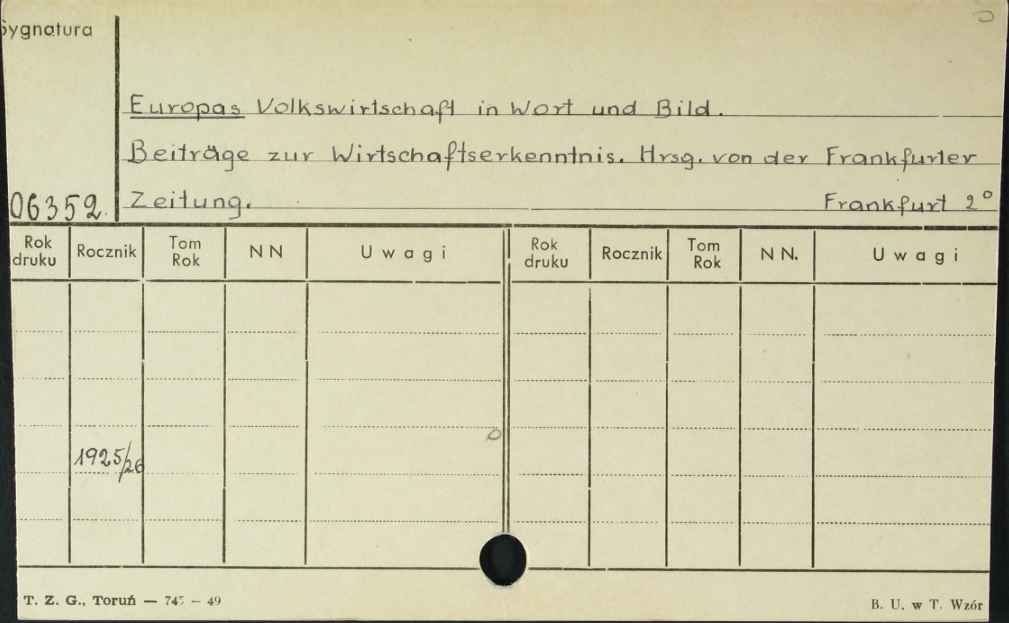 Sygnatura
Europas Volkswirtschaft in Wort und Bild.
Beiträge zur Wirtschaftserkenntnis. Hrsg. von der Frankfurter
06352. Zeitung. Frankfurt 2°
Rok druku Rocznik Tom Rok NN Uwagi Rok druku Rocznik Tom Rok NN. Uwagi
1925/26
T. Z. G., Toruń — 745 — 49 B. U. w T. Wzór